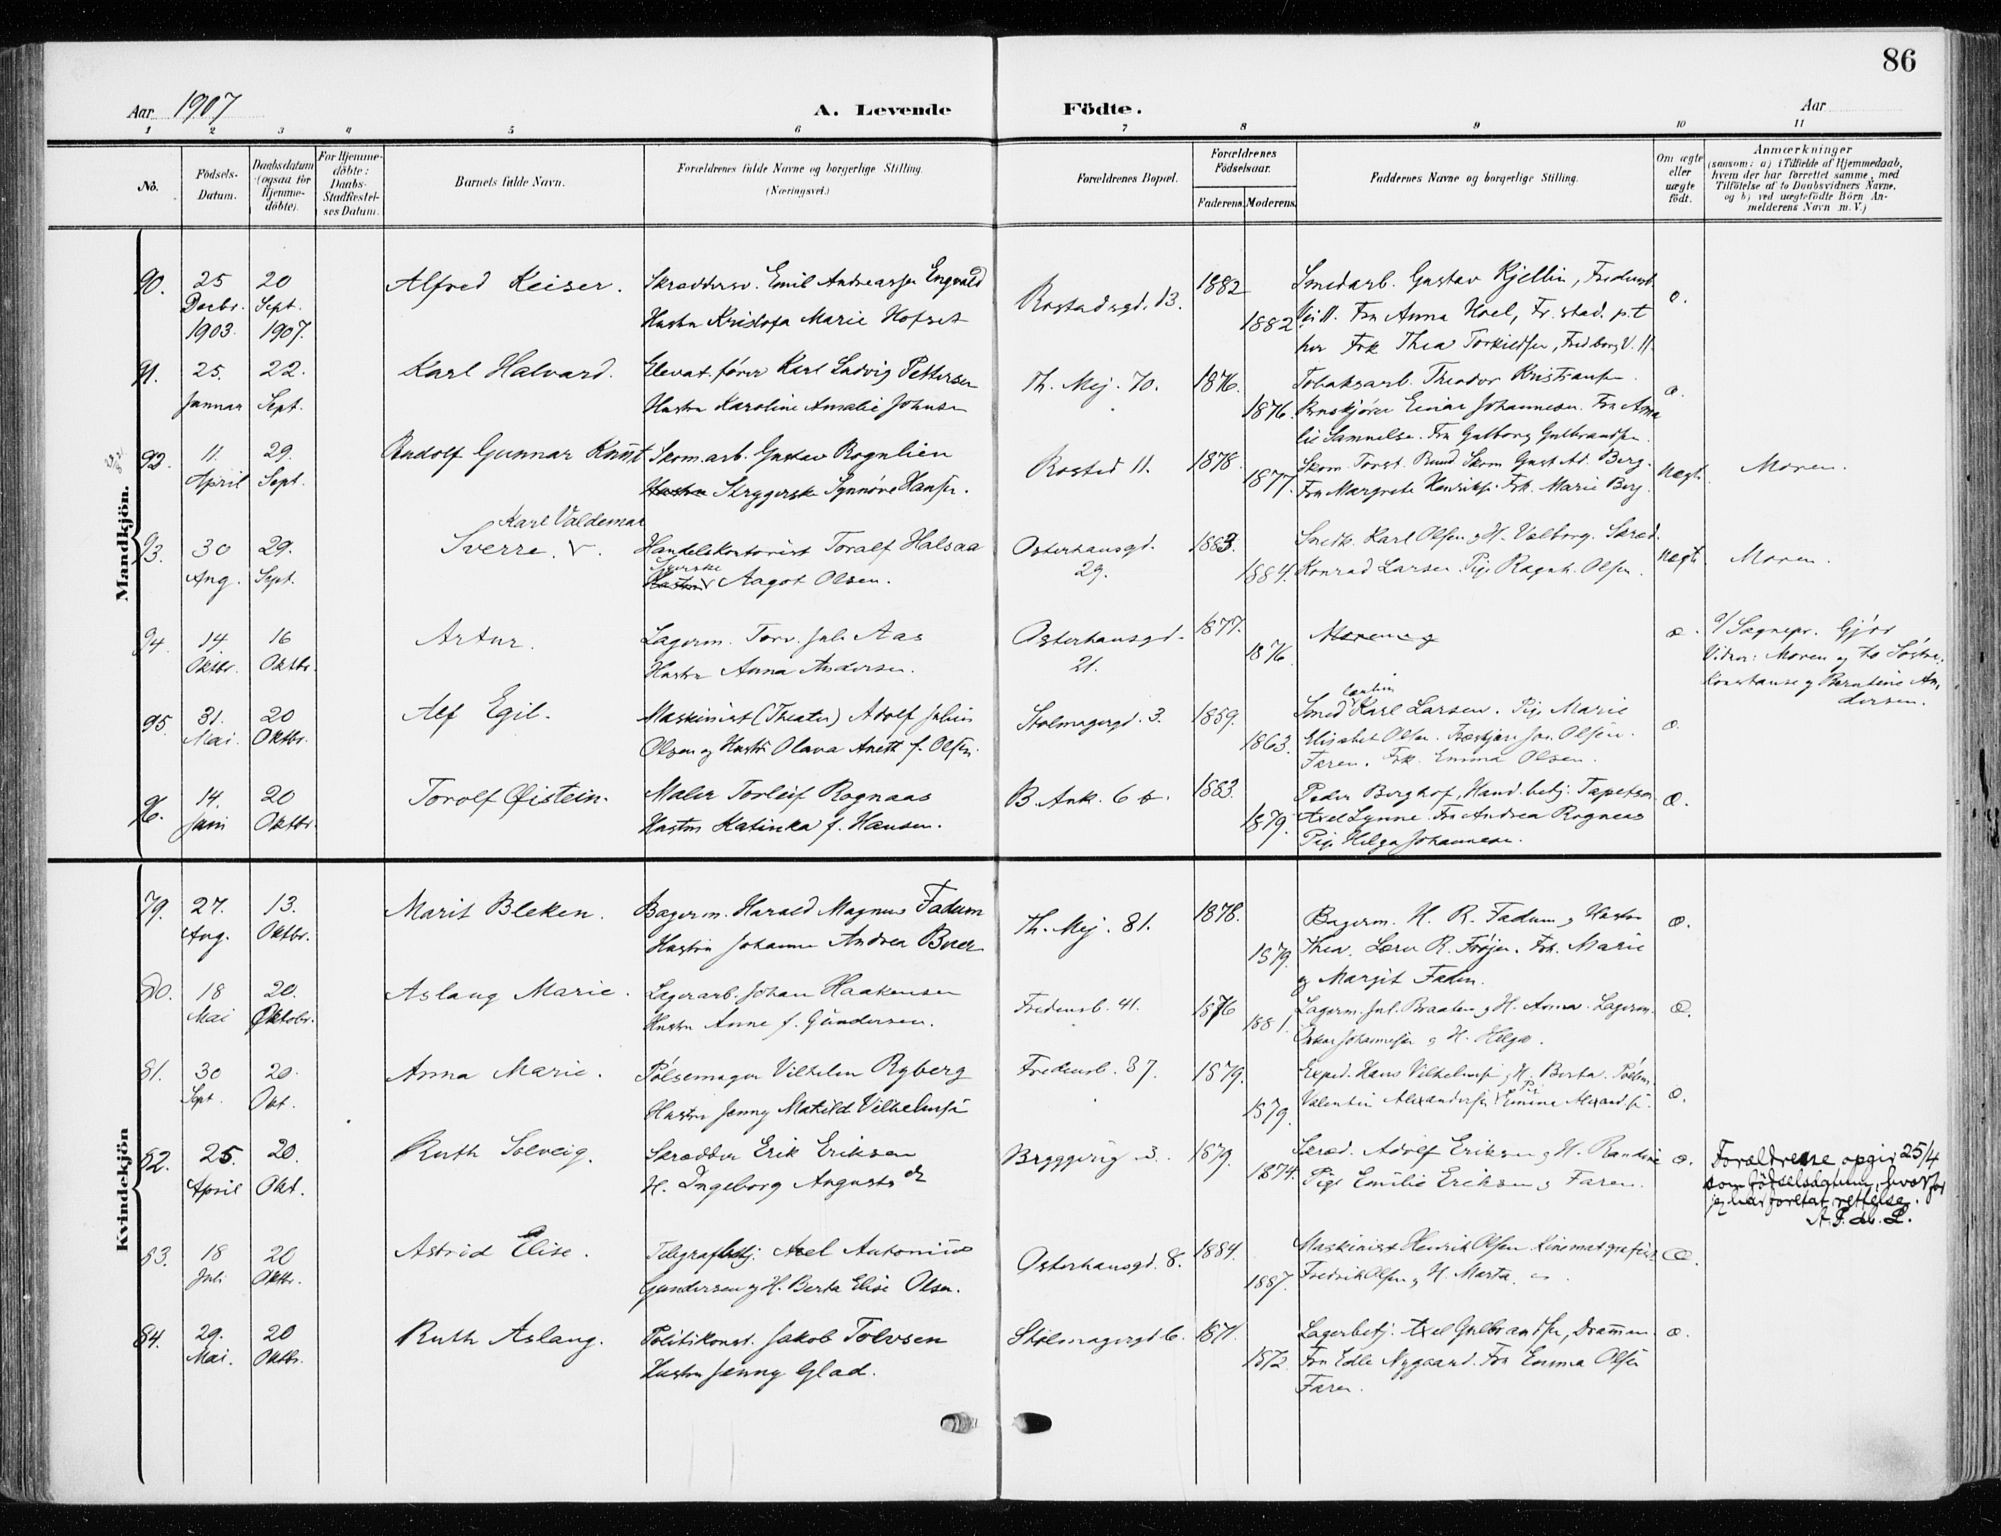 86
Aar 1907 A. Levende Födte. Aar
1 2 3 4 5 6 7 8 9 10 11
No.
Födsels-Datum.
Daabsdatum (ogsaa for Hjemme-döbte).
For Hjemme-döbte: Daabs-Stadfæstel-ses Datum.
Barnets fulde Navn.
Forældrenes fulde Navne og borgerlige Stilling.
(Næringsvei.)
Forældrenes Bopæl.
Forældrenes Födselsaar.
Faderens. Moderens.
Faddernes Navne og borgerlige Stilling.
Om ægte eller uægte födt.
Anmærkninger
(saasom: a) i Tilfælde af Hjemmedaab, hvem der har forrettet samme, med Tilföielse af to Daabsvidners Navne, og b) ved uægtefödte Börn Anmelderens Navn m. V.)
Mandkjön.
90. 25 Decbr. 1903. 20 Sept. 1907. Alfred Keiser. Skræddersv. Emil Andreassen Engvold
Hustru Kristofa Marie Hofset
Rostadsgd. 13. 1882 1882
Smedarb. Gustav Kjellin, Fredensb.
V. 11. Fru Anna Hoel, Fr.stad. p.t.
her Frk Thea Torkildsen, Fredborg V. 11.
æ.
91. 25. Januar 22. Sept. Karl Halvard. Elevat.fører Karl Ludvig Pettersen
Hustru Karoline Amalie Johnsen
Th. Mej. 70. 1876. 1876.
Tobaksarb. Theodor Kristiansen.
Einar Johannesen. Fru Ama
lie Samuelse. Fru Gulborg Gulbrandsen.
æ.
92. 11. April 29. Sept. Rudolf Gunnar Knut Skom.arb. Gustav Rognlien
Hustru Strygerske Synnøve Hansen.
Rosted 11. 1878. 1877.
Skom. Torst. Ruud Skom Gust. Ad. Berg.
Fru Margrete Henriks. Frk. Marie Berg.
uægt. Moren.
93. 30 Aug. 29. Sept. Karl Valdemar
Sverre. v. Handelskontorist Toralf Halsaa
Hustru v Aagot Olsen.
Osterhausgd. 29. 1883. 1884.
Karl Olsen og H. Valborg. Skræd.
Konrad Larsen. Pige Ragnh. Olsen.
uægt. Moren.
94. 14. Oktbr. 16 Oktbr. Artur. Lagerm. Torv. Juli Aas
Hustru Anna Andersen.
Osterhausgd. 21. 1877. 1876.
Moren og
æ. a/ Sognepr. Gjör
Vidner: Moren og to Søstre.
Konstanse og Berntine An-
dersen.
95. 31. Mai. 20 Oktbr. Alf Egil. Maskinist (Theater) Adolf Julius
Olsen og Hustru Olava Anett f. Olsen.
Stolmagergd. 3. 1859. 1863.
Smed Karl Larsen. Pige Marie
Elisabet Olsen. Jos. Olsen.
Faren. Frk. Emma Olsen.
æ.
96. 14. Juni 20 Oktbr. Torolf Øistein. Maler Torleif Rognaas
Hustru Katinka f. Hansen.
B. Ank. 6 b. 1883. 1879.
Peder Berghof, Hand.betj. Tapetser
Axel Lynne. Fru Andrea Rognaas
Pige Helga Johannesen.
æ.
Kvindekjön
79. 27. Aug. 13. Oktbr. Marit Bleken. Bagerm. Harald Magnus Fadum
Hustru Johanne Andrea Buer
Th. Mej. 81. 1878. 1879.
Bagerm. H. R. Fadum og Hustru
Thea. Lærer R. Frøjer. Frk. Marie
og Margit Fadum.
æ.
80. 18 Mai 20. Oktobr. Aslaug Marie. Lagerarb. Johan Haakensen
Hustru Anne f. Gundersen.
Fredensb. 41. 1876 1881.
Lagerm. Jul. Braaten og H. Anna. Lagerm.
Oskar Johannessen og H. Helga.
Æ.
81. 30 Sept. 20. Okt. Anna Marie. Pølsemager Vilhelm Ryberg
Hustru Jenny Matild Vilhelmsen
Fredensb. 37. 1879. 1879.
Exped. Hans Vilhelmsen og H. Berta. Pølsem.
Valentin Alexandersen Pige Emma Alexandsen.
æ.
82. 25. April 20. Okt. Ruth Solveig. Skrædder Erik Eriksen
H. Ingeborg Augusta ds
Bryggerig. 3. 1879. 1874.
Skræd. Adolf Eriksen og H. Randine
Pige Emilie Eriksen og Faren.
æ. Forældrene opgir 25/4
som fødselsdatum, hvorfor
jeg har foretat rettelse.
83. 18 Juli 20 Oktbr. Astrid Elise. Telegrafbetj. Axel Antonius
Gundersen og H. Berta Elise Olsen.
Osterhausgd. 8. 1884. 1887.
Maskinist Henrik Olsen. Kinematografeier
Fredrik Olsen og H. Marta.
Æ.
84. 29. Mai. 20 Oktbr. Ruth Aslaug. Politikonst. Jakob Tolvsen
Hustru Jenny Glad.
Stolmagergd 6. 1871. 1872.
Lagerbetj. Axel Gulbrandsen, Drammen.
Fru Edle Nygaard. Fru Emma Olsen
Faren.
æ.